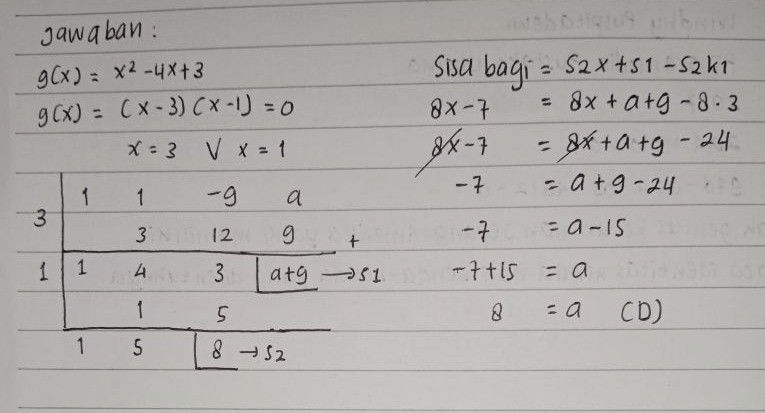 Jawaban :
g(x) = x² - 4x + 3
g(x) = (x-3) (x-1) = 0
x = 3 V x = 1
3 | 1 1 -9 a
3 12 9 +
1 | 1 4 3 | a+9 → S1
1 5
1 5 | 8 → S2
Sisa bagi = S2x + S1 - S2k1
8x - 7 = 8x + a + 9 - 8 . 3
8x - 7 = 8x + a + 9 - 24
-7 = a + 9 - 24
-7 = a - 15
-7 + 15 = a
8 = a (D)